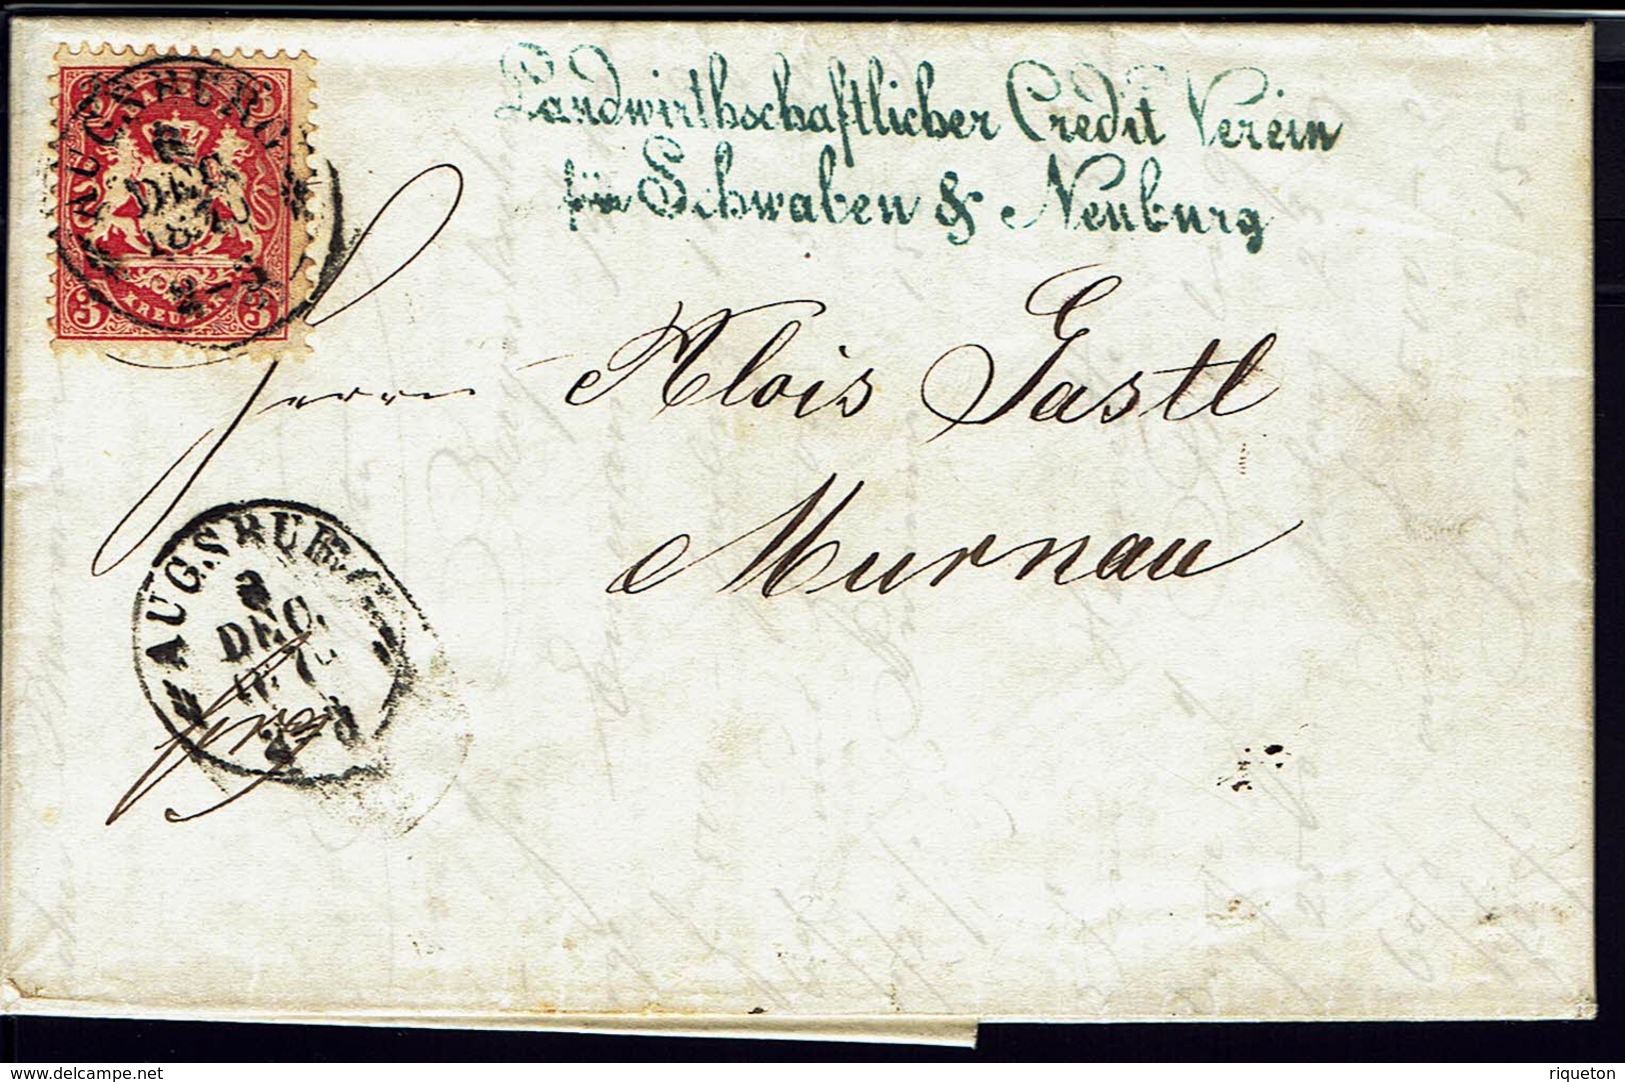 AUGSBURG
DEC
1870
3 3
3 KREUZER 3
Landwirthschaftlicher Credit Verein
für Schwaben & Neuburg
Herrn Alois Gastl
Murnau
AUGSBURG
DEC.
delcampe.net
riqueton